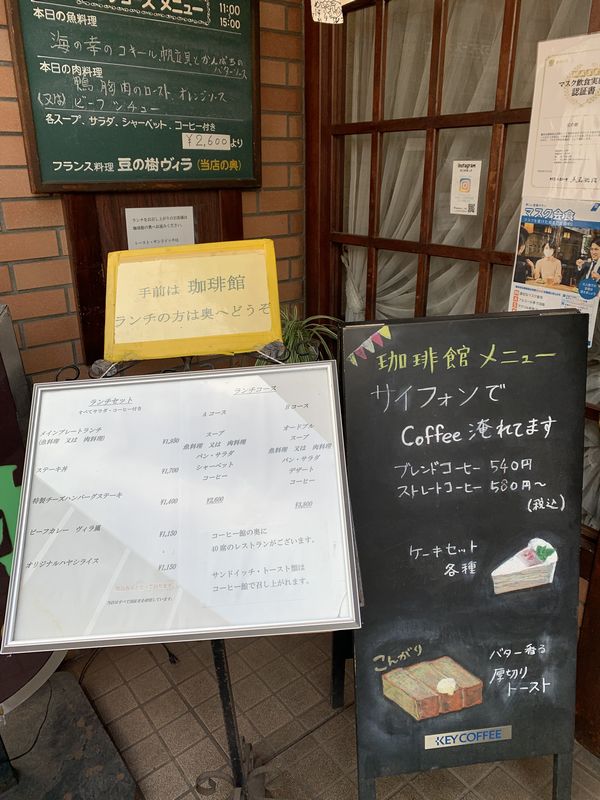 コースメニュー
11:00
15:00
本日の魚料理
海の幸のコキール、帆立貝とかんぱちの
バターソース
本日の肉料理
鴨胸肉のロースト、オレンジソース
(又は)ビーフシチュー
各スープ、サラダ、シャーベット、コーヒー付き
¥2,600より
フランス料理 豆の樹ヴィラ(当店の奥)
手前は 珈琲館
ランチの方は奥へどうぞ
ランチセット
すべてサラダ・コーヒー付き
メインプレートランチ
(魚料理 又は 肉料理) ¥1,950
ステーキ丼 ¥1,700
特製チーズハンバーグステーキ ¥1,400
ビーフカレー ヴィラ風 ¥1,150
オリジナルハヤシライス ¥1,150
ランチコース
Aコース
スープ
魚料理 又は 肉料理
パン・サラダ
シャーベット
コーヒー
¥2,600
Bコース
オードブル
スープ
魚料理 又は 肉料理
パン・サラダ
デザート
コーヒー
¥3,800
コーヒー館の奥に
40席のレストランがございます。
サンドイッチ・トースト類は
コーヒー館で召し上がれます。
珈琲館メニュー
サイフォンで
Coffee 淹れてます
ブレンドコーヒー 540円
ストレートコーヒー 580円〜
(税込)
ケーキセット
各種
こんがり
バター香る
厚切り
トースト
KEY COFFEE
Instagram
マスク飲食実施
認証書
マスク会食